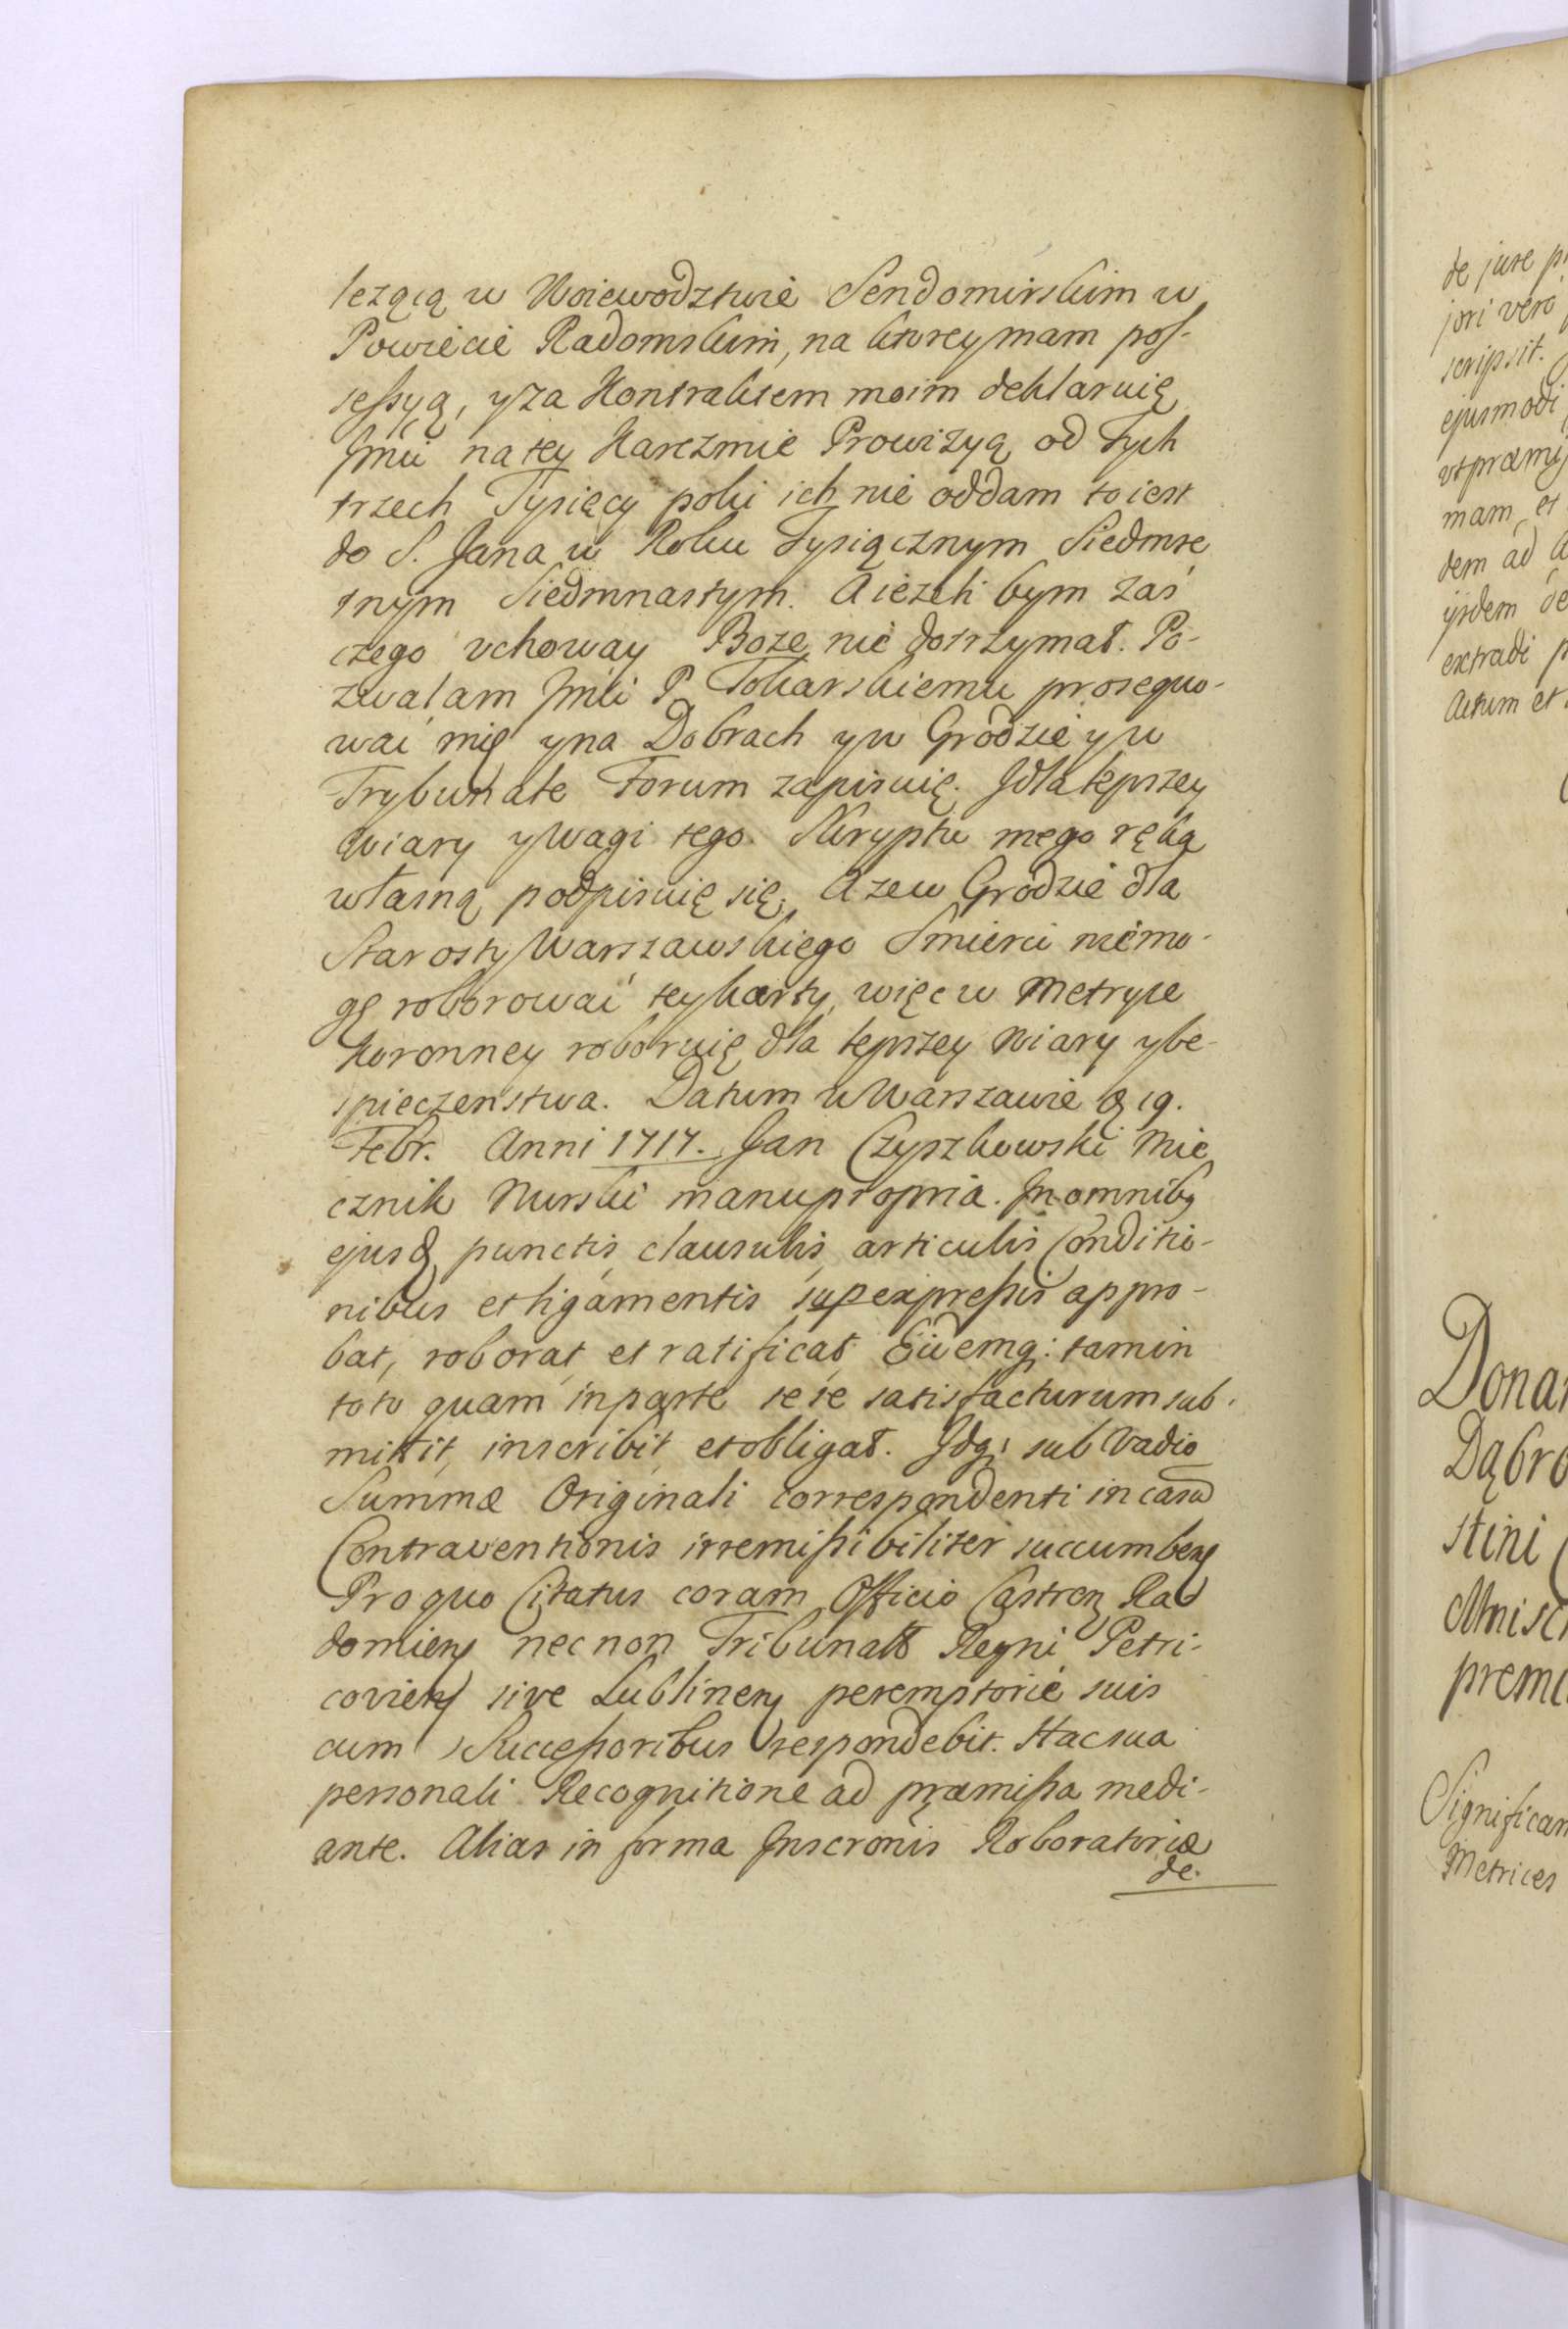 lezącą w Woiewodztwie Sendomirskim w
Powiecie Radomskim, na ktorey mam pos-
sessyą, y za Kontraktem moim deklaruię
Jmći na tey Karczmie Prowizyą od Tych
trzech Tysięcy poki ich nie oddam to iest
do S. Jana w Roku Tysiącznym Siedmse
tnym Siedmnastym. A ieżeli bym zaś
czego uchoway Boze nie dotrzymał. Po-
zwalam Jmći P. Tokarskiemu prosequo-
wać mię y na Dobrach y w Grodzie y w
Trybunale Forum zapisuię. J dla lepszey
wiary y wagi tego Skryptu mego ręką
własną podpisuię się. A ze w Grodzie dla
Starosty Warszawskiego Smierci niemo-
gę roborować tey karty, więc w Metryce
Koronney roboruię dla lepszey wiary y be-
spieczenstwa. Datum w Warszawie d. 19.
Febr. Anni 1717. Jan Czyszkowski Mie
cznik Nurski manu propria. In omnibq
ejusq punctis, clausulis, articulis Conditio-
nibus et ligamentis supexpressis appro-
bat, roborat et ratificat, Eidemq: tam in
toto quam in parte sese satisfacturum sub-
mittit, inscribit et obligat. Idq: sub Vadio
Summæ Originali correspondenti in casu
Contraventionis irremissibiliter succumben
Pro quo Citatus coram Officio Castren Ra
domien nec non Tribunalt Regni Petri-
covien sive Lublinen peremptorie suis
cum Successoribus respondebit. Hac sua
personali Recognitione ad præmissa medi-
ante. Alias in forma Inscronis Roboratoriæ
de.
de jure
jori vero
scripsit.
ejusmodi
mam et
dem ad
extradi
Actum et
Donat
Dąbro
stini
prem
Significam
Metrices